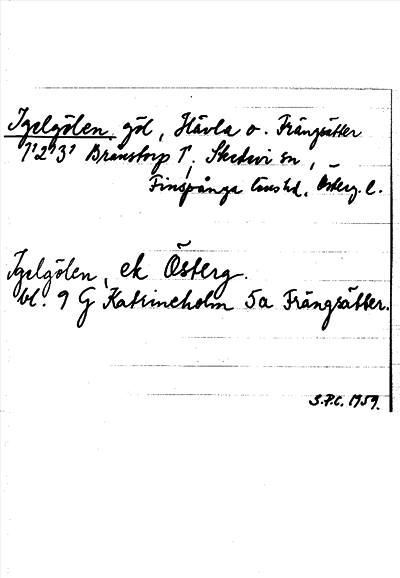 Igelgölen, göl, Hävla o. Frängsätter
1'2'3' Branstorp 1', Skedevi sn,
Finspånga läns hd, Österg. l.
Igelgölen, ek Österg.
bl. 9 G Katrineholm 5a Frängsätter.
S.P.C. 1959.